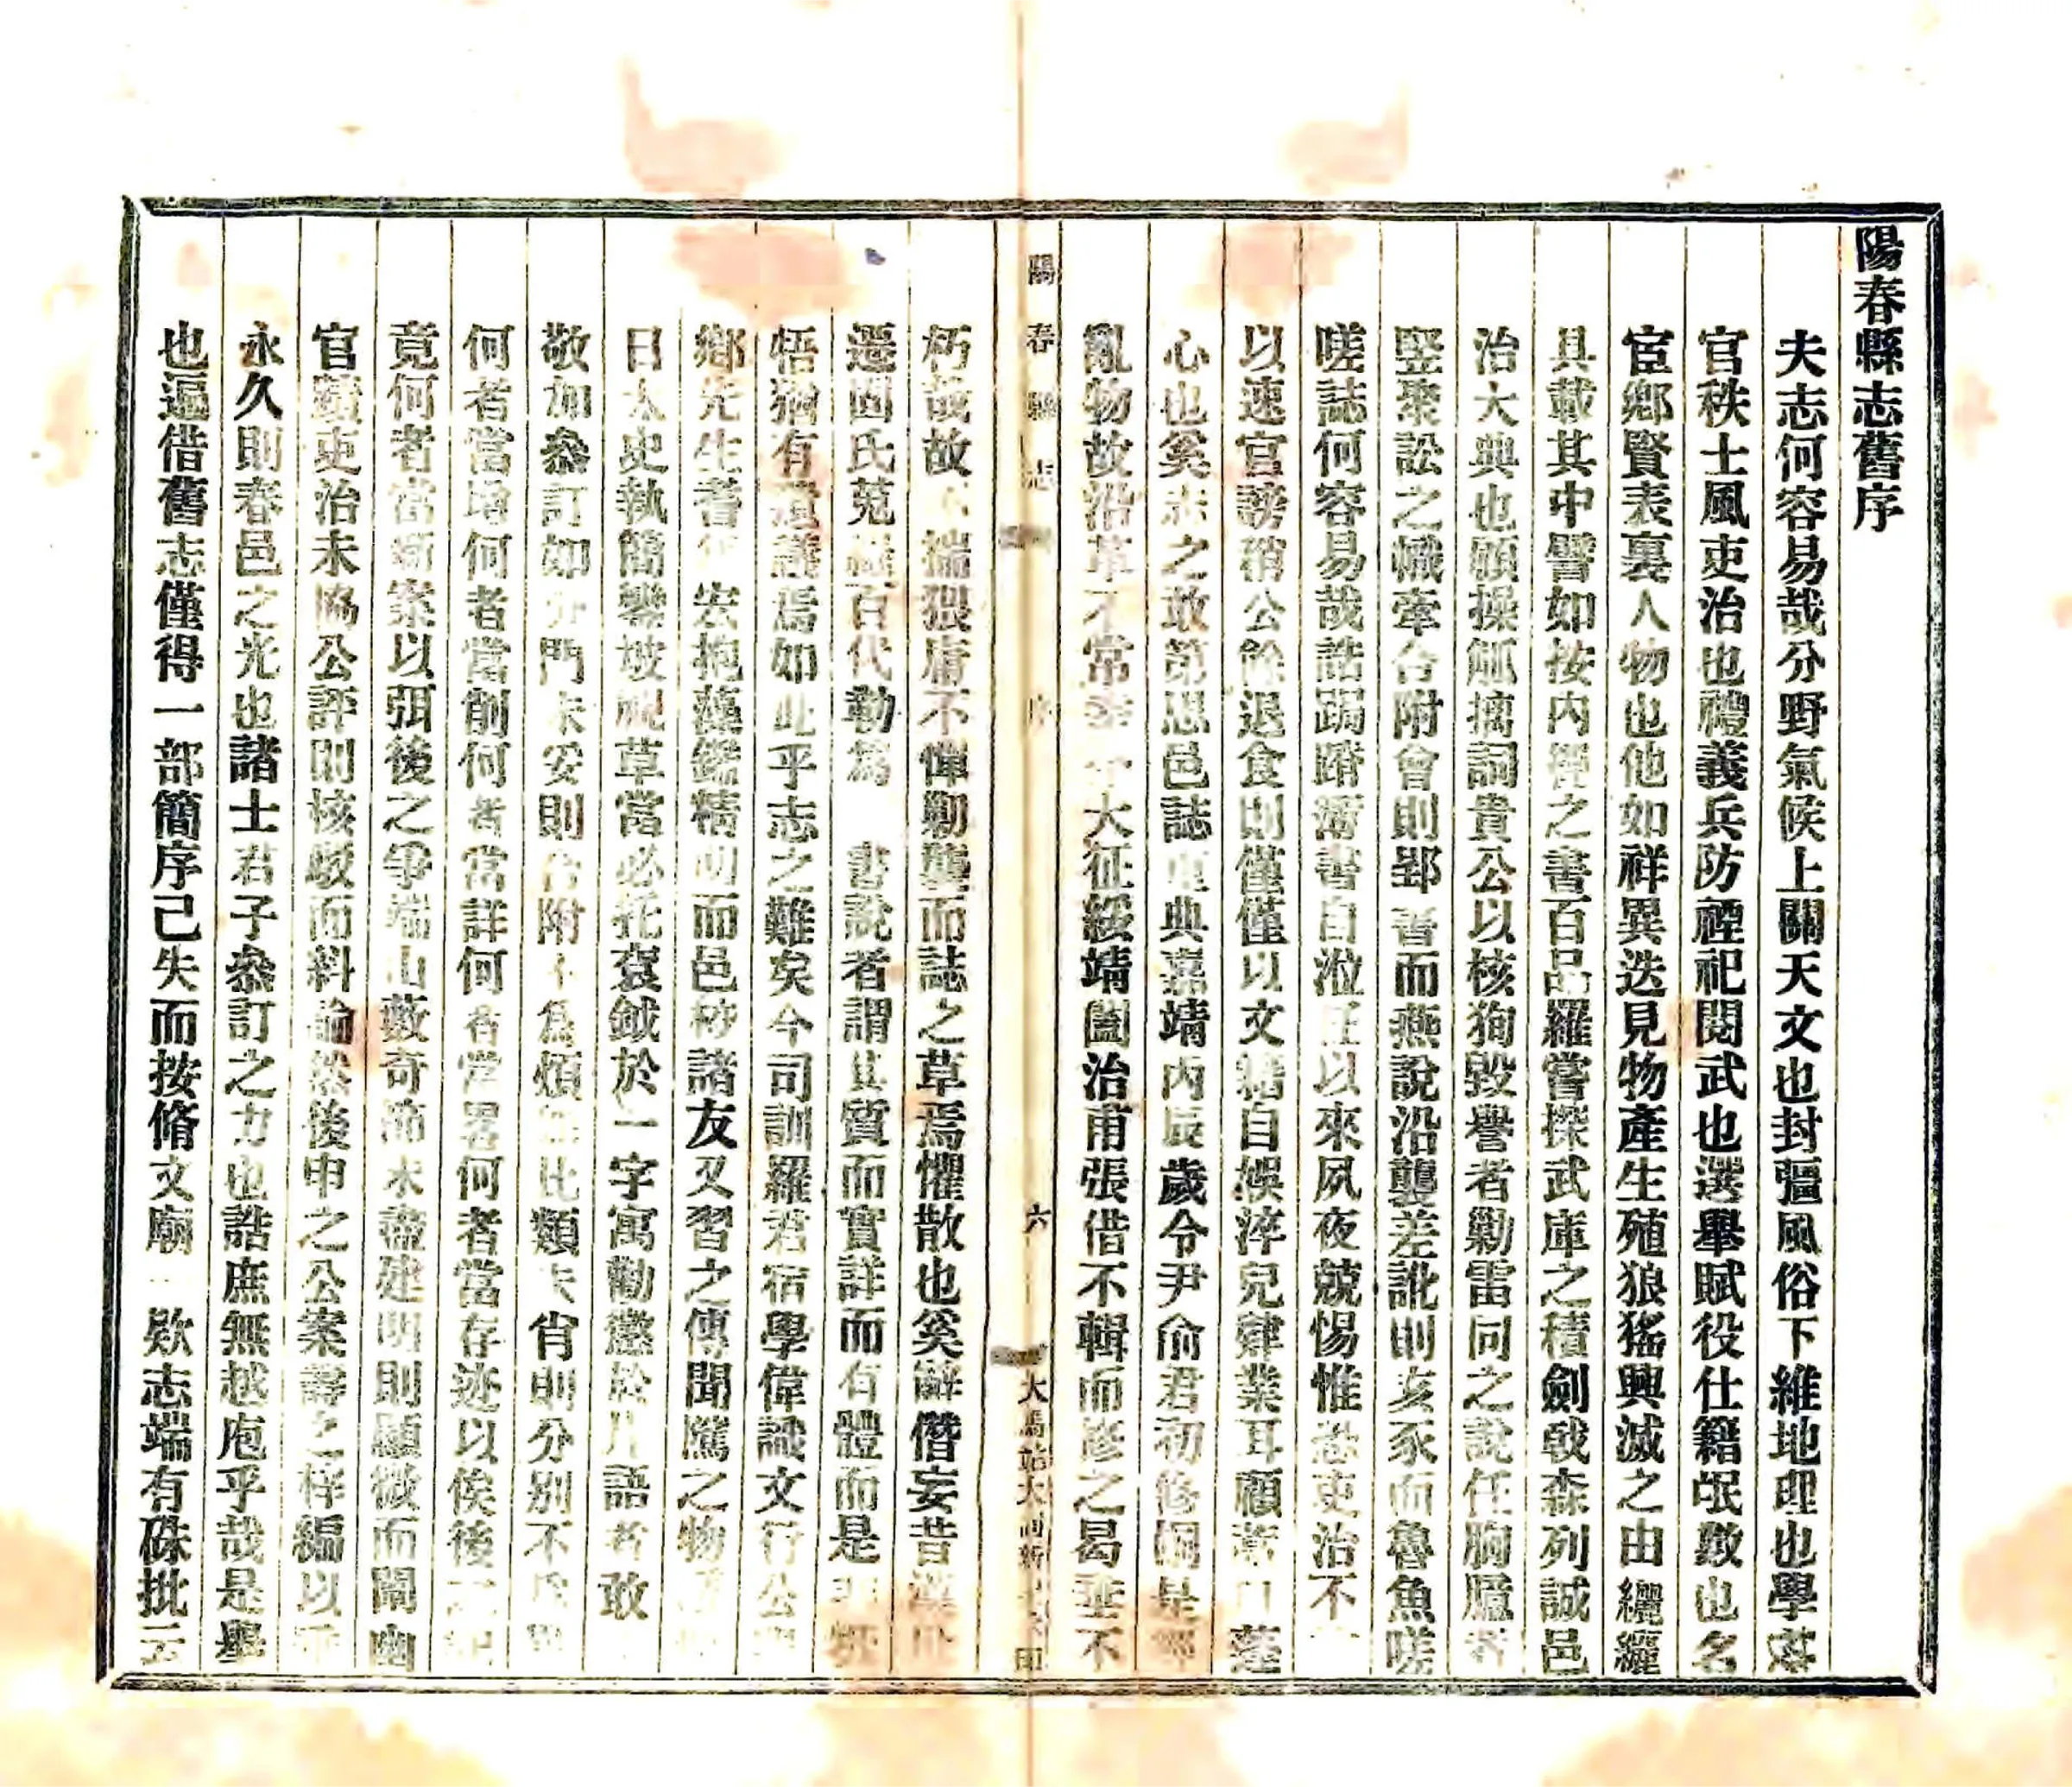 陽春縣志舊序
夫志何容易哉分野氣候上關天文也封疆風俗下維地理也學
官秩士風吏治也禮義兵防禋祀閱武也選舉賦役仕籍氓數也名
宦鄉賢表裏人物也他如祥異迭見物產生殖狼猺興滅之由纚纚
具載其中譬如按內之書百品羅嘗探武庫之積劍戟森列誠邑
治大典也願操觚摛詞貴公以核狥毀譽者勦雷同之說任胸臆者
竪聚訟之幟牽合附會則郢書而燕說沿襲差訛則亥豕而魯魚嗟
嗟誌何容易哉誥跼蹐自涖任以來夙夜兢惕惟恐吏治不
以速官謗稍公餘退食則僅僅以文自娛淬兒肄業耳顧
心也奚志之敢第思邑誌重典嘉靖丙辰歲令尹俞君初修嗣是
亂物故沿革不常大征綏靖闔治甫張借不輯而修之曷垂不
朽哉故不揣猥庸不憚勦襲而誌之草焉懼散也奚辭僭妄昔
遷固氏百代勒爲書說者謂其質而實詳而有體而是
悟猶有遺議焉如此乎志之難矣今司訓羅君宿學偉識文行公
鄉先生耆宏抱藻鑑精明而邑諸友又習之傳聞騭之物
日太史執簡鑾坡視草當必托袞鉞於一字寓勸懲於片語者敢
敬加叅訂如分門未安則合附不爲煩比類未肖則分別不
何者當增何者當削何者當詳何者當畧何者當存迹以俟後
竟何者當斷案以弭後之爭端山藪奇未盡建明則顯微而闡幽
官蹟吏治未協公評則核駁而料論然後申之公案壽之梓編以
永久則春邑之光也諸士君子叅訂之力也誥庶無越庖乎哉是舉
也遍借舊志僅得一部簡序已失而按脩文廟一欵志端有硃批云
陽春縣志
序
六